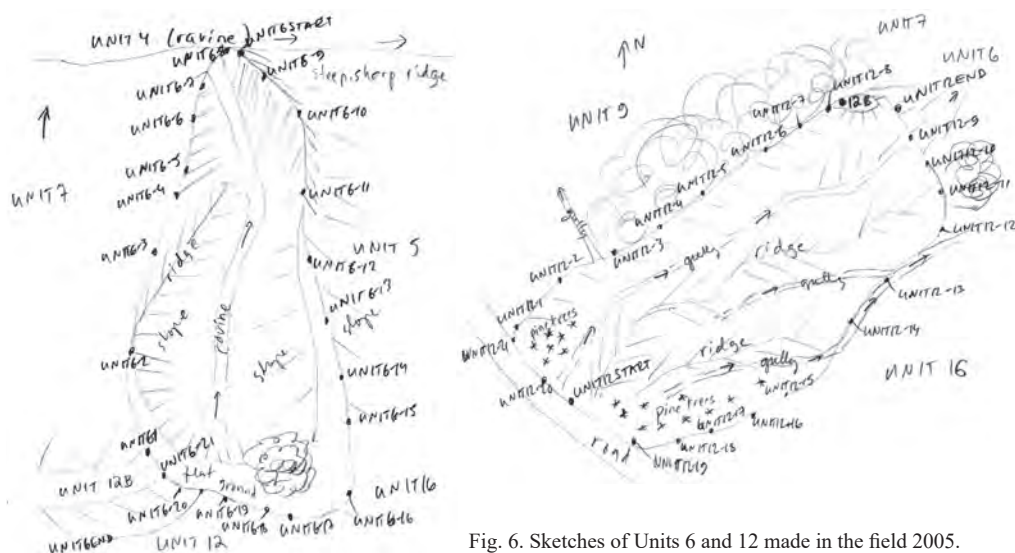 UNIT 4 (ravine)
UNIT6START
UNIT6-8
UNIT6-9
steep, sharp ridge
UNIT6-7
UNIT6-10
UNIT6-6
UNIT6-5
UNIT6-4
UNIT 7
UNIT6-11
UNIT6-3
ridge
UNIT 5
UNIT6-12
UNIT6-13
slope
ravine
slope
UNIT6-2
slope
UNIT6-14
UNIT6-15
UNIT6-1
UNIT6-21
flat
ground
UNIT 12B
UNIT 16
UNIT6-20
UNIT6-19
UNIT6-18
UNIT6-17
UNIT6-16
UNIT6END
UNIT 12
N
UNIT 7
UNIT 6
UNIT 9
UNIT12-8
12B
UNIT12END
UNIT12-7
UNIT12-6
UNIT12-9
UNIT12-10
UNIT12-5
UNIT12-11
UNIT12-4
gully
UNIT12-3
UNIT12-12
UNIT12-2
gully
ridge
UNIT12-1
pine trees
gully
UNIT12-13
UNIT12-21
UNIT12-14
ridge
UNIT12-20
UNIT12START
gully
UNIT 16
UNIT12-15
pine trees
UNIT12-17
UNIT12-16
road
UNIT12-18
UNIT12-19
Fig. 6. Sketches of Units 6 and 12 made in the field 2005.